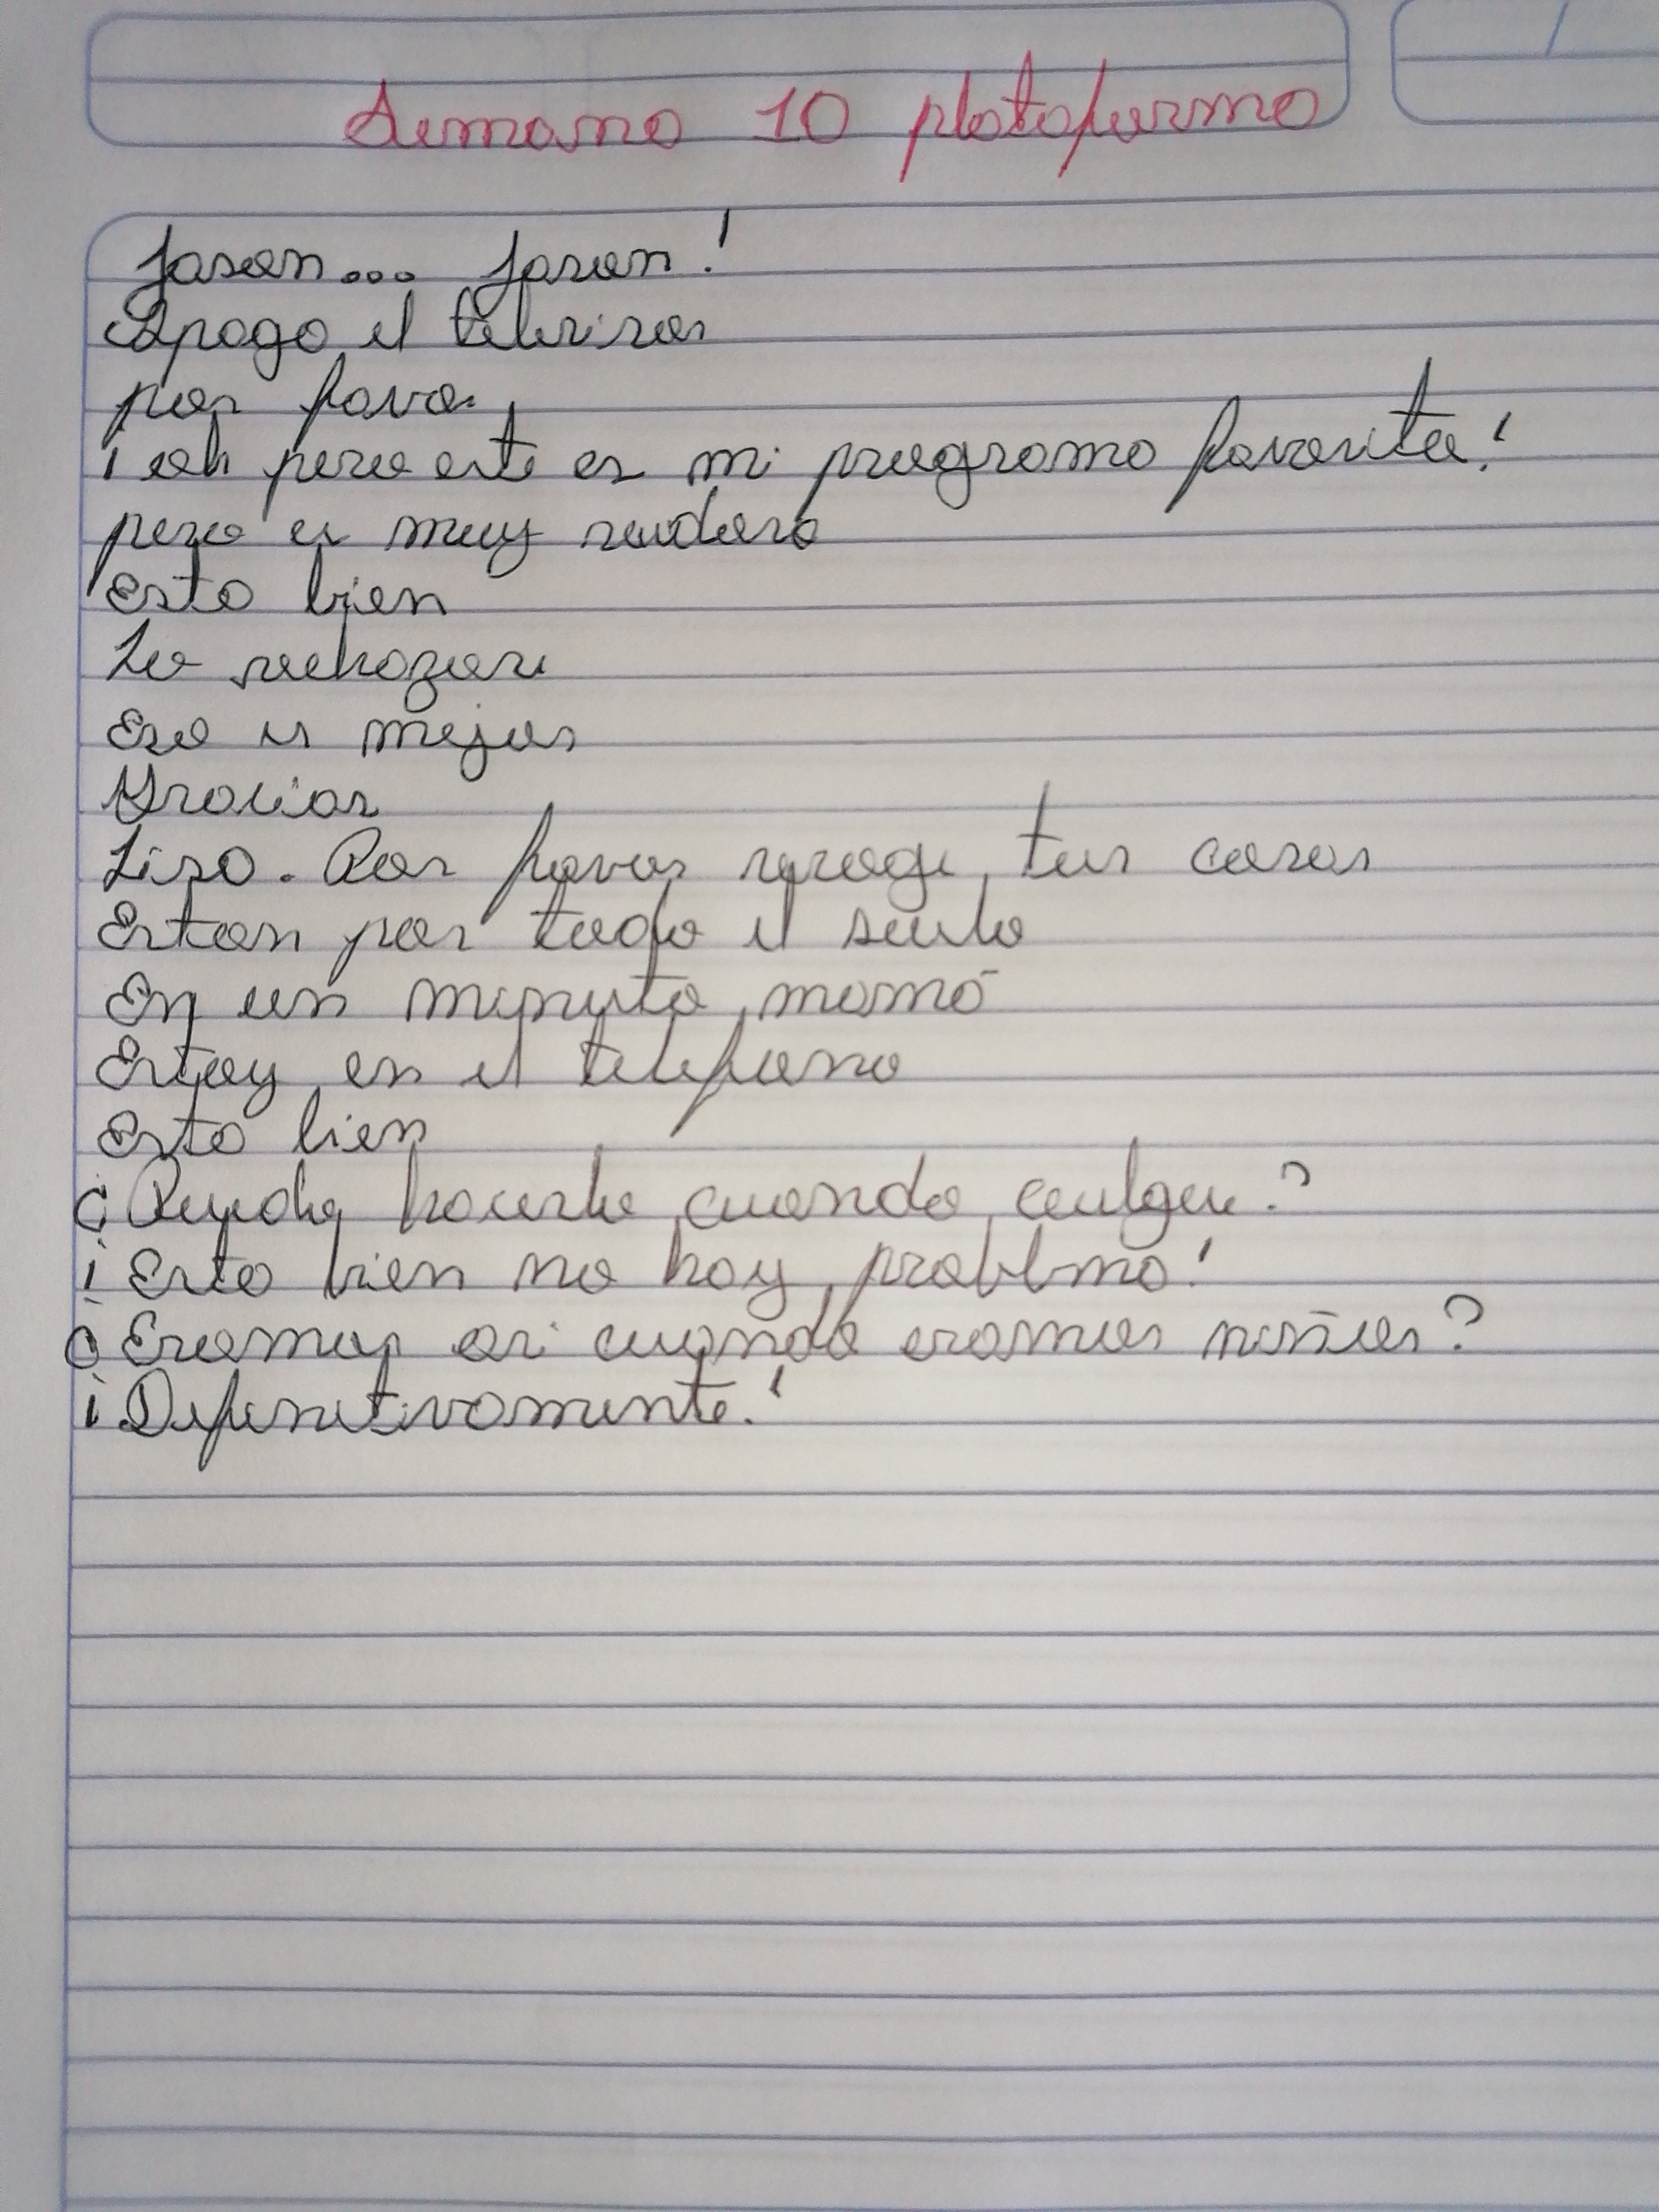 Semana 10 plataforma
Jason... Jason!
Apaga el televisor
por favor
¡ oh pero este es mi programa favorito!
pero es muy ruidoso
Esta bien
Lo rechazare
Eso es mejor
Gracias
Lisa. Por favor recoge tus cosas
Estan por todo el suelo
En un minuto mamá
Estoy en el telefono
Esta bien
¿Puedes hacerlo cuando cuelgue?
¡Esta bien no hay problema!
¿Eramos asi cuando eramos niños?
¡Definitivamente!